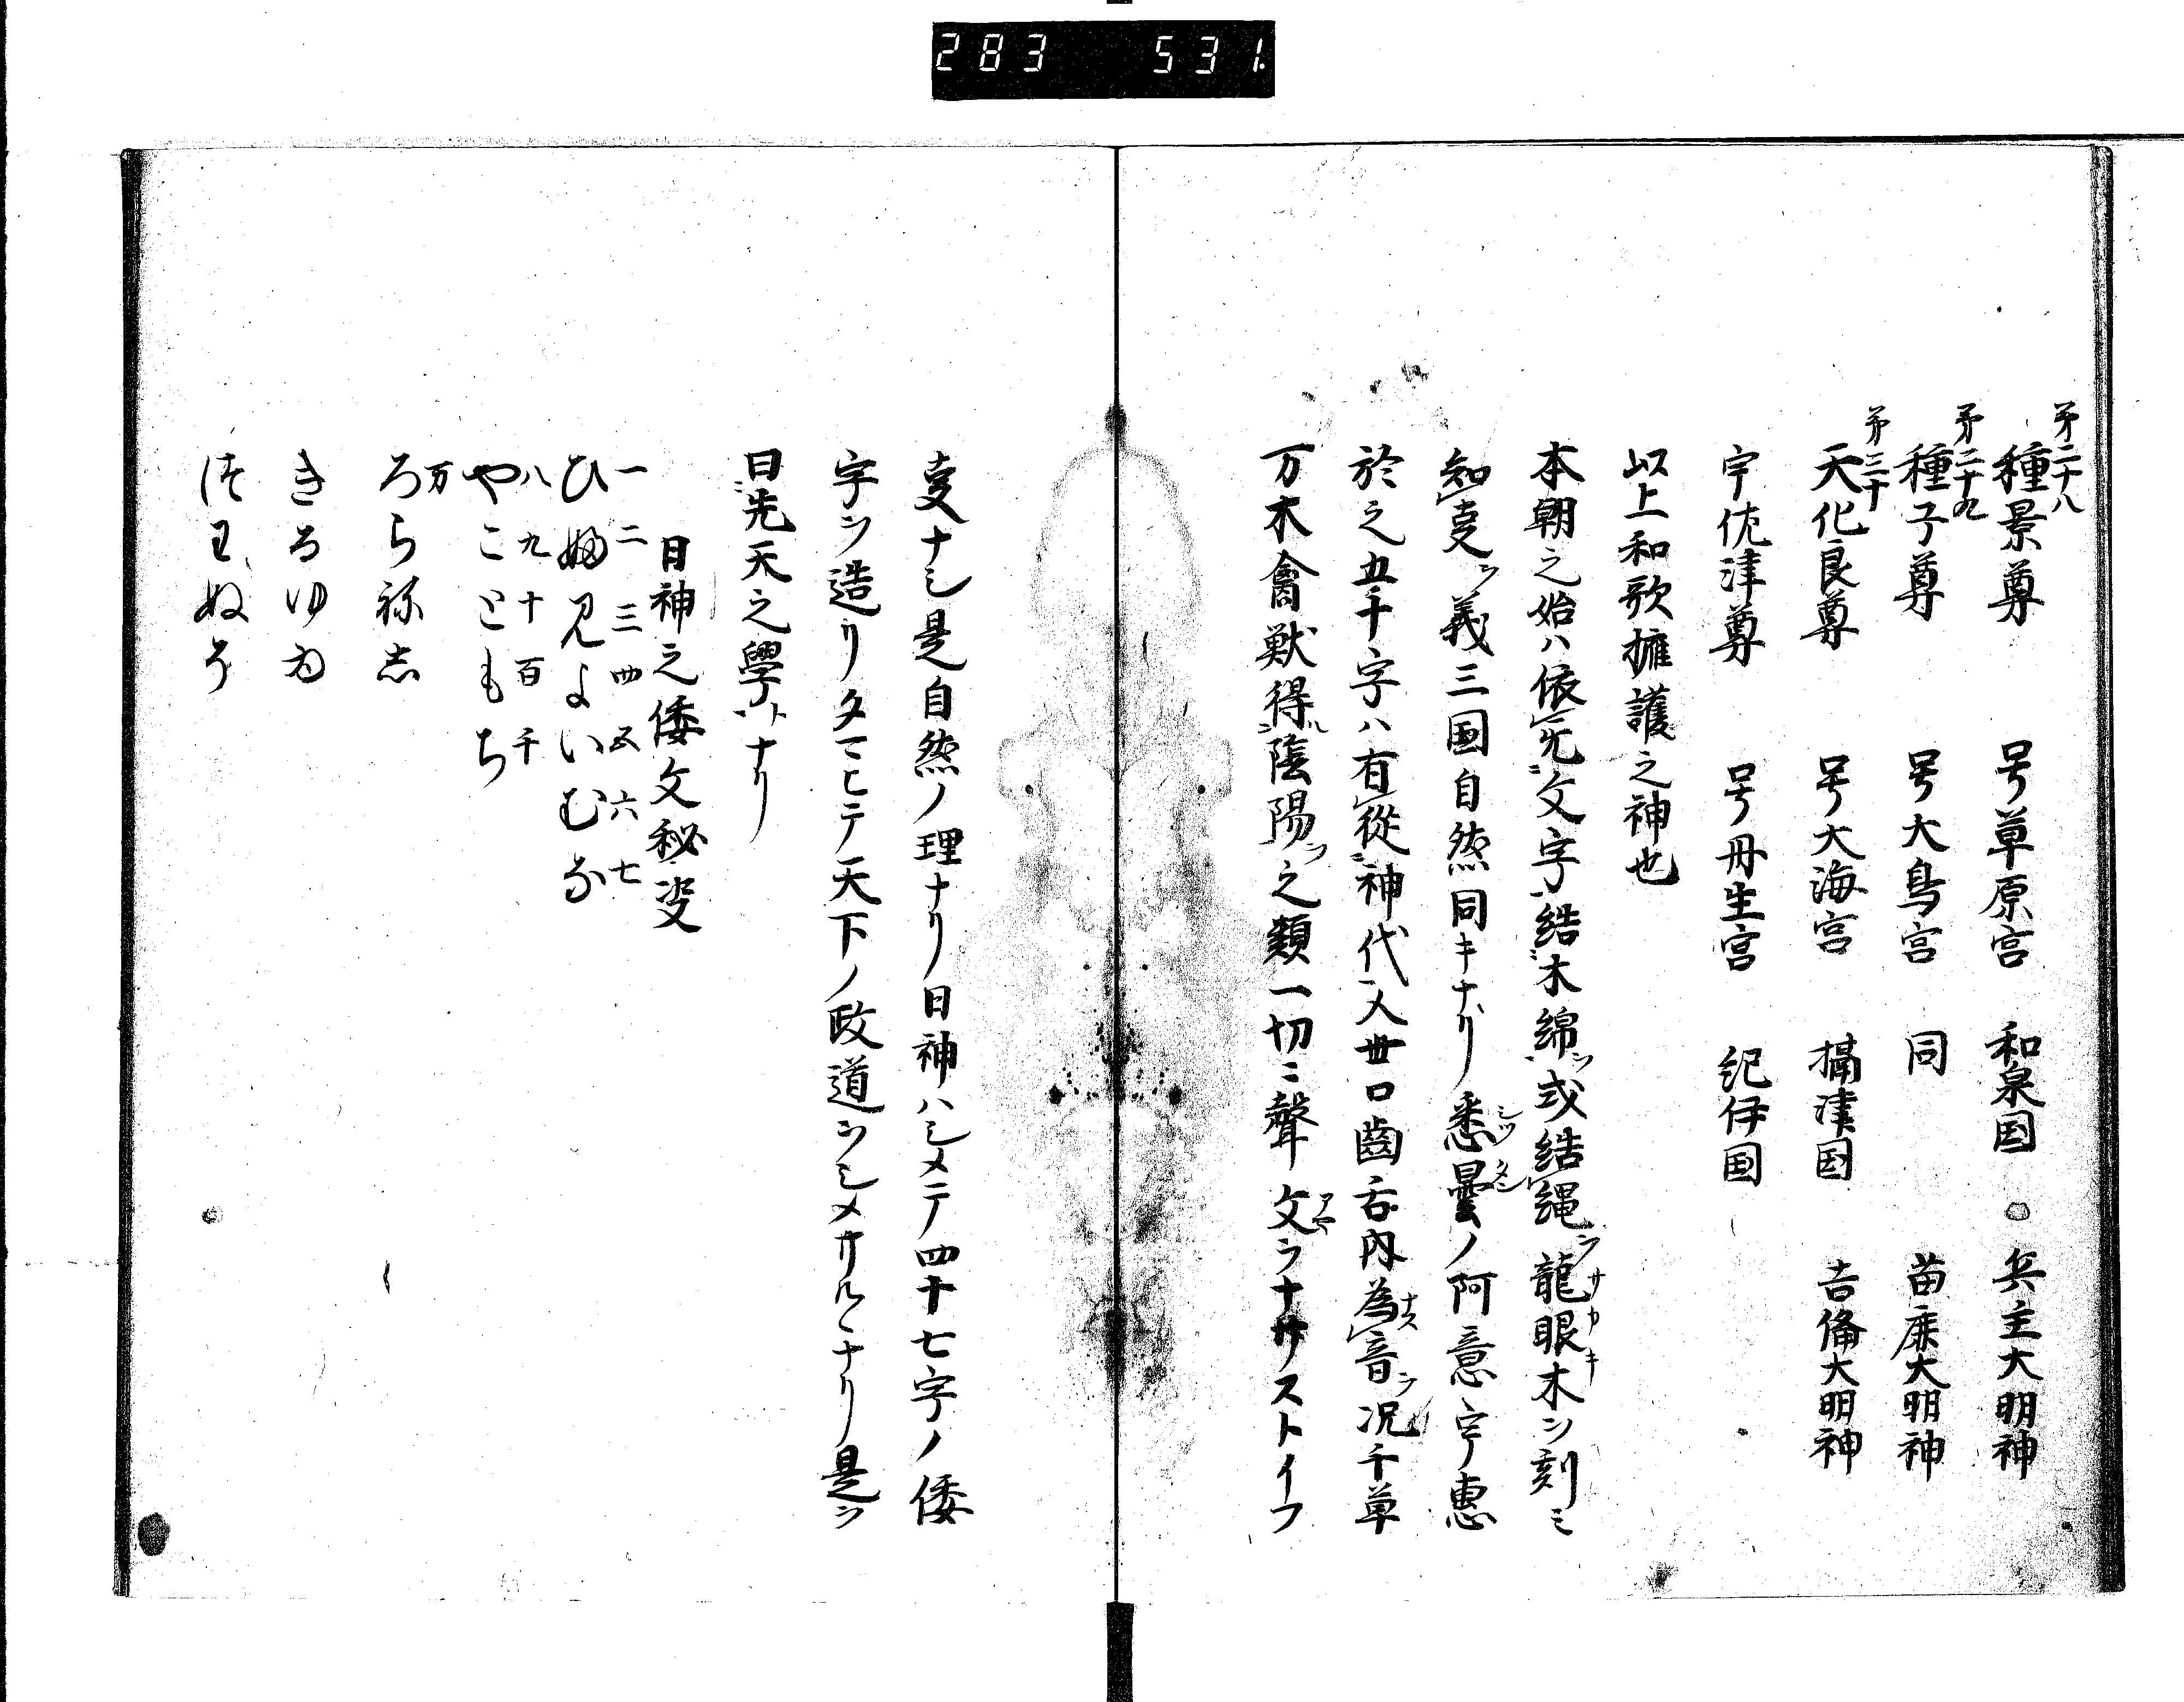 283 531.
第二十八
種景尊 号草原宮 和泉国 兵主大明神
第二十九
種子尊 号大鳥宮 同 苗鹿大明神
第三十
天化良尊 号大海宮 摂津国 吉備大明神
宇佐津尊 号丹生宮 紀伊国
以上和歌擁護之神也
本朝之始ハ依旡文字結木綿ヲ或結縄ヲ龍眼木ヲ刻ミ
サカキ
知叓ヲ義三国自然同キナリ悉曇ノ阿意宇恵
シツタン
於之五千字ハ有従神代人世口齒舌内為音ヲ况千草
ナス
万木禽獣得陰陽ヲ之類一切ニ聲文ヲナサストイフ
アヤ
叓ナシ是自然ノ理ナリ日神ハシメテ四十七字ノ倭
字ヲ造リタマヒテ天下ノ政道ヲシメサルヽナリ是ヲ
曰先天之學トナリ
日神之倭文秘叓
一二三四五六七
ひふみよいむな
八九十百千
やこともち
万
ろらねし
きるゆゐ
つわぬそ